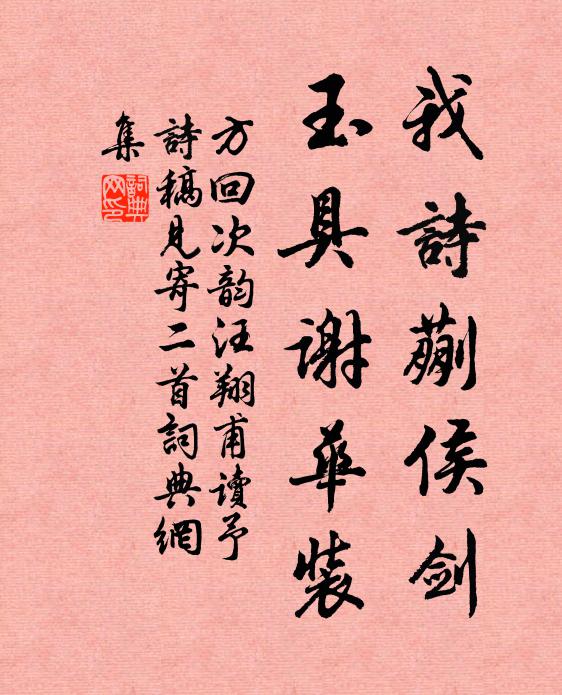 我詩蒯侯劍
玉具謝華裝
方回次韵汪翔甫讀予
詩稿見寄二首詞典網
集
詞典
网印